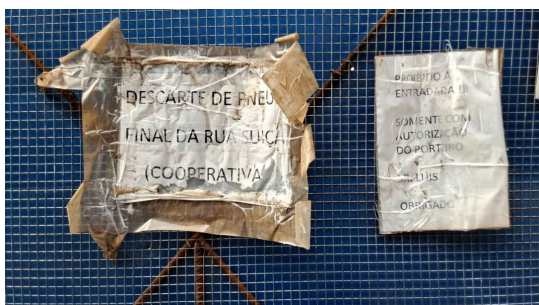 DESCARTE DE PNEU
FINAL DA RUA SUIÇA
(COOPERATIVA
PROIBIDO A
ENTRADADA
SOMENTE COM
AUTORIZAÇÃO
DO PORTEIRO
LUIS
OBRIGADO